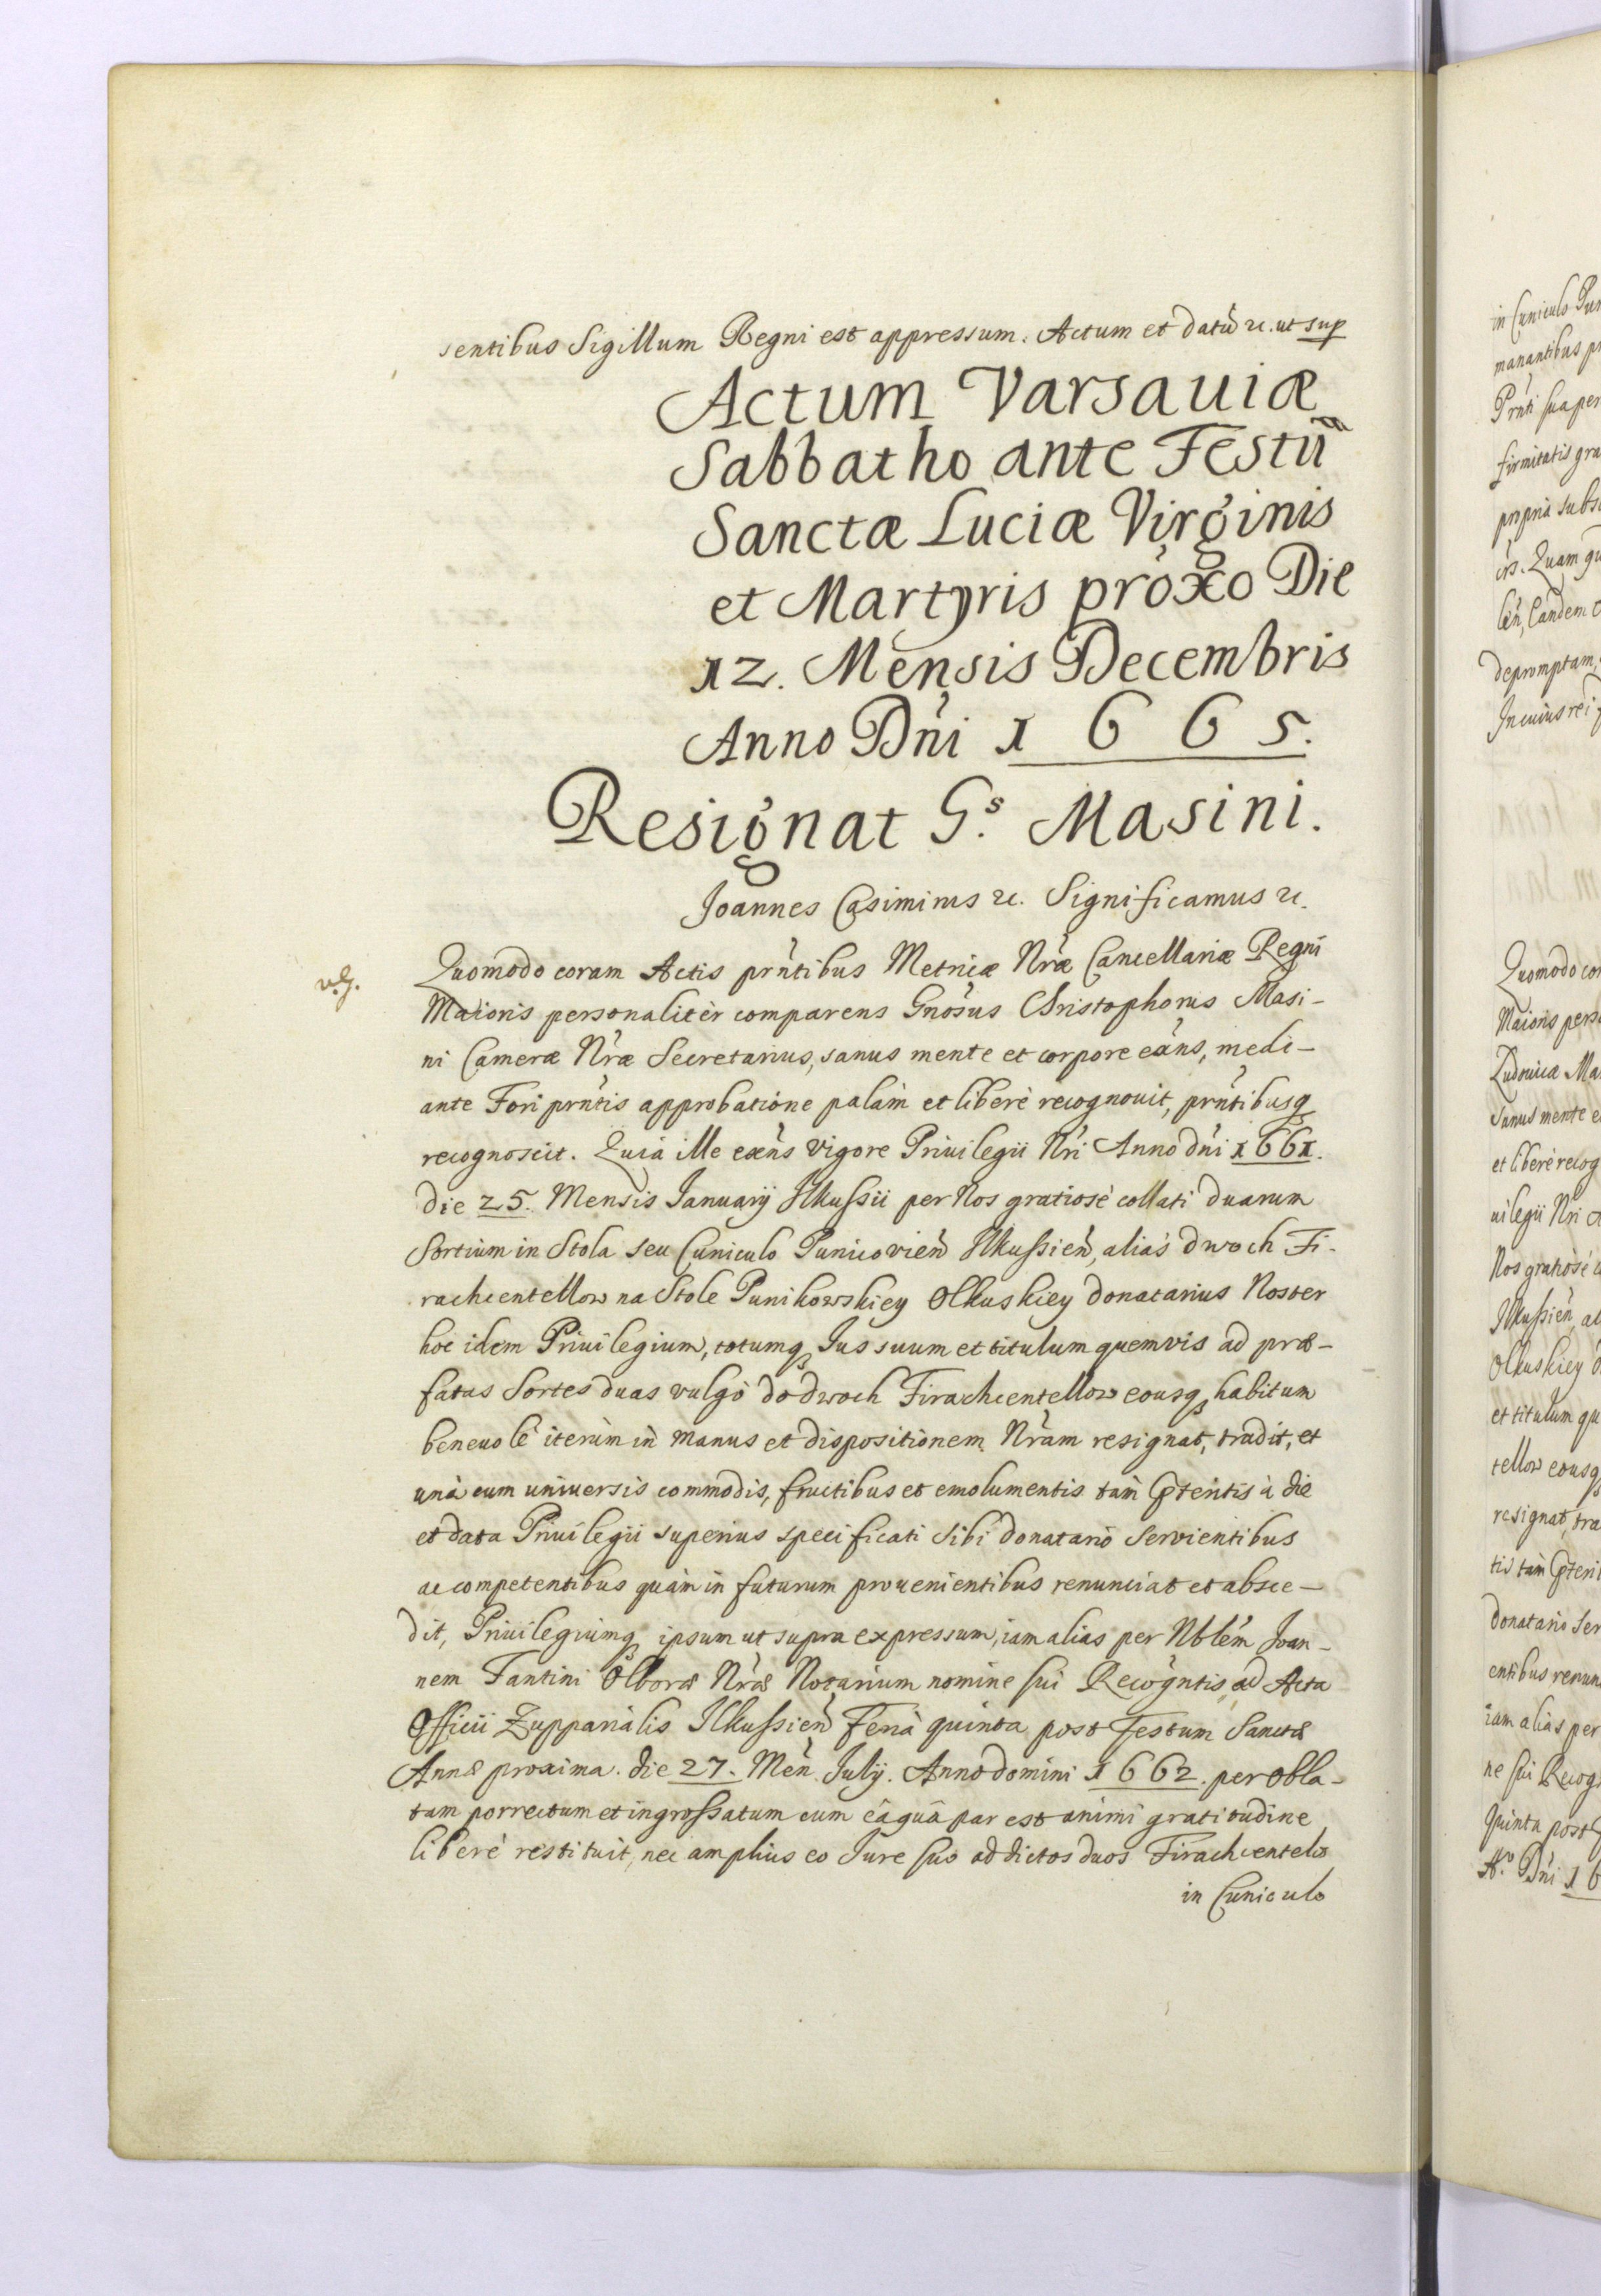 sentibus Sigillum Regni est appressum. Actum et datũ ꝛc. ut sup
Actum Varsauiæ
Sabbatho ante Festũ
Sanctæ Luciæ Virginis
et Martyris proxo Die
12. Mensis Decembris
Anno Dni 1665.
Resignat G.s Masini.
Joannes Casimirus ꝛc. Significamus ꝛc.
Quomodo coram Actis prñtibus Metricæ Nræ Cancellariæ Regni
Maioris personalitèr comparens Gnosus Christophorus Masi-
ni Cameræ Nræ Secretarius, sanus mente et corpore exñs, medi-
ante Fori prñtis approbatione palàm et liberè recognouit, prñtibusq
recognoscit. Quià ille exñs vigore Priuilegii Nri Anno dni 1661.
die 25. Mensis Januarij Ilkussii per Nos gratiosè collati duarum
Sortium in Stola seu Cuniculo Punicovien Ilkussien, aliàs dwoch Fi-
rachcentellow na Stole Punikowskiey Olkuskiey donatarius Noster
hoc idem Priuilegium, totumq Jus suum et titulum quemvis ad præ-
fatas Sortes duas vulgò do dwoch Firachcentellow eousq habitum
beneuolè iterùm in manus et dispositionem Nram resignat, tradit, et
unà cum uniuersis commodis, fructibus et emolumentis tàm pteritis à die
et data Priuilegii superius specificati sibi donatario servientibus
ac competentibus quàm in futurum prouenientibus renunciat et absce-
dit, Priuilegiumq ipsum ut supra expressum, iam alias per Nblem Joan-
nem Fantini Olboræ Nræ Notarium nomine sui Recogntis, ad Acta
Officii Zupparialis Ilkussien Feria quinta post Festum Sanctæ
Annæ proxima. die 27. Men Julij. Anno domini 1662. per obla-
tam porrectum et ingrossatum cum eâ quâ par est animi gratitudine
liberè restituit, nec amplius eo Jure suo ad dictos duos Firachcentelos
in Cuniculo
in Cuniculo Pun
manantibus pr
Prñti sua per
firmitatis gra
propria subs
Quam qu
Eandem
depromptam,
In cuius rei
Quomodo cor
Maioris pers
Ludouicæ Ma
sanus mente e
et liberè recog
uilegii Nri
Nos gratiosè
Ilkussien, al
Olkuskiey
et titulum qu
tellow eousq
resignat, tra
tis tàm pteri
donatario ser
entibus renun
iam alias per
ne sui Recog
quinta post
Ao Dni 16